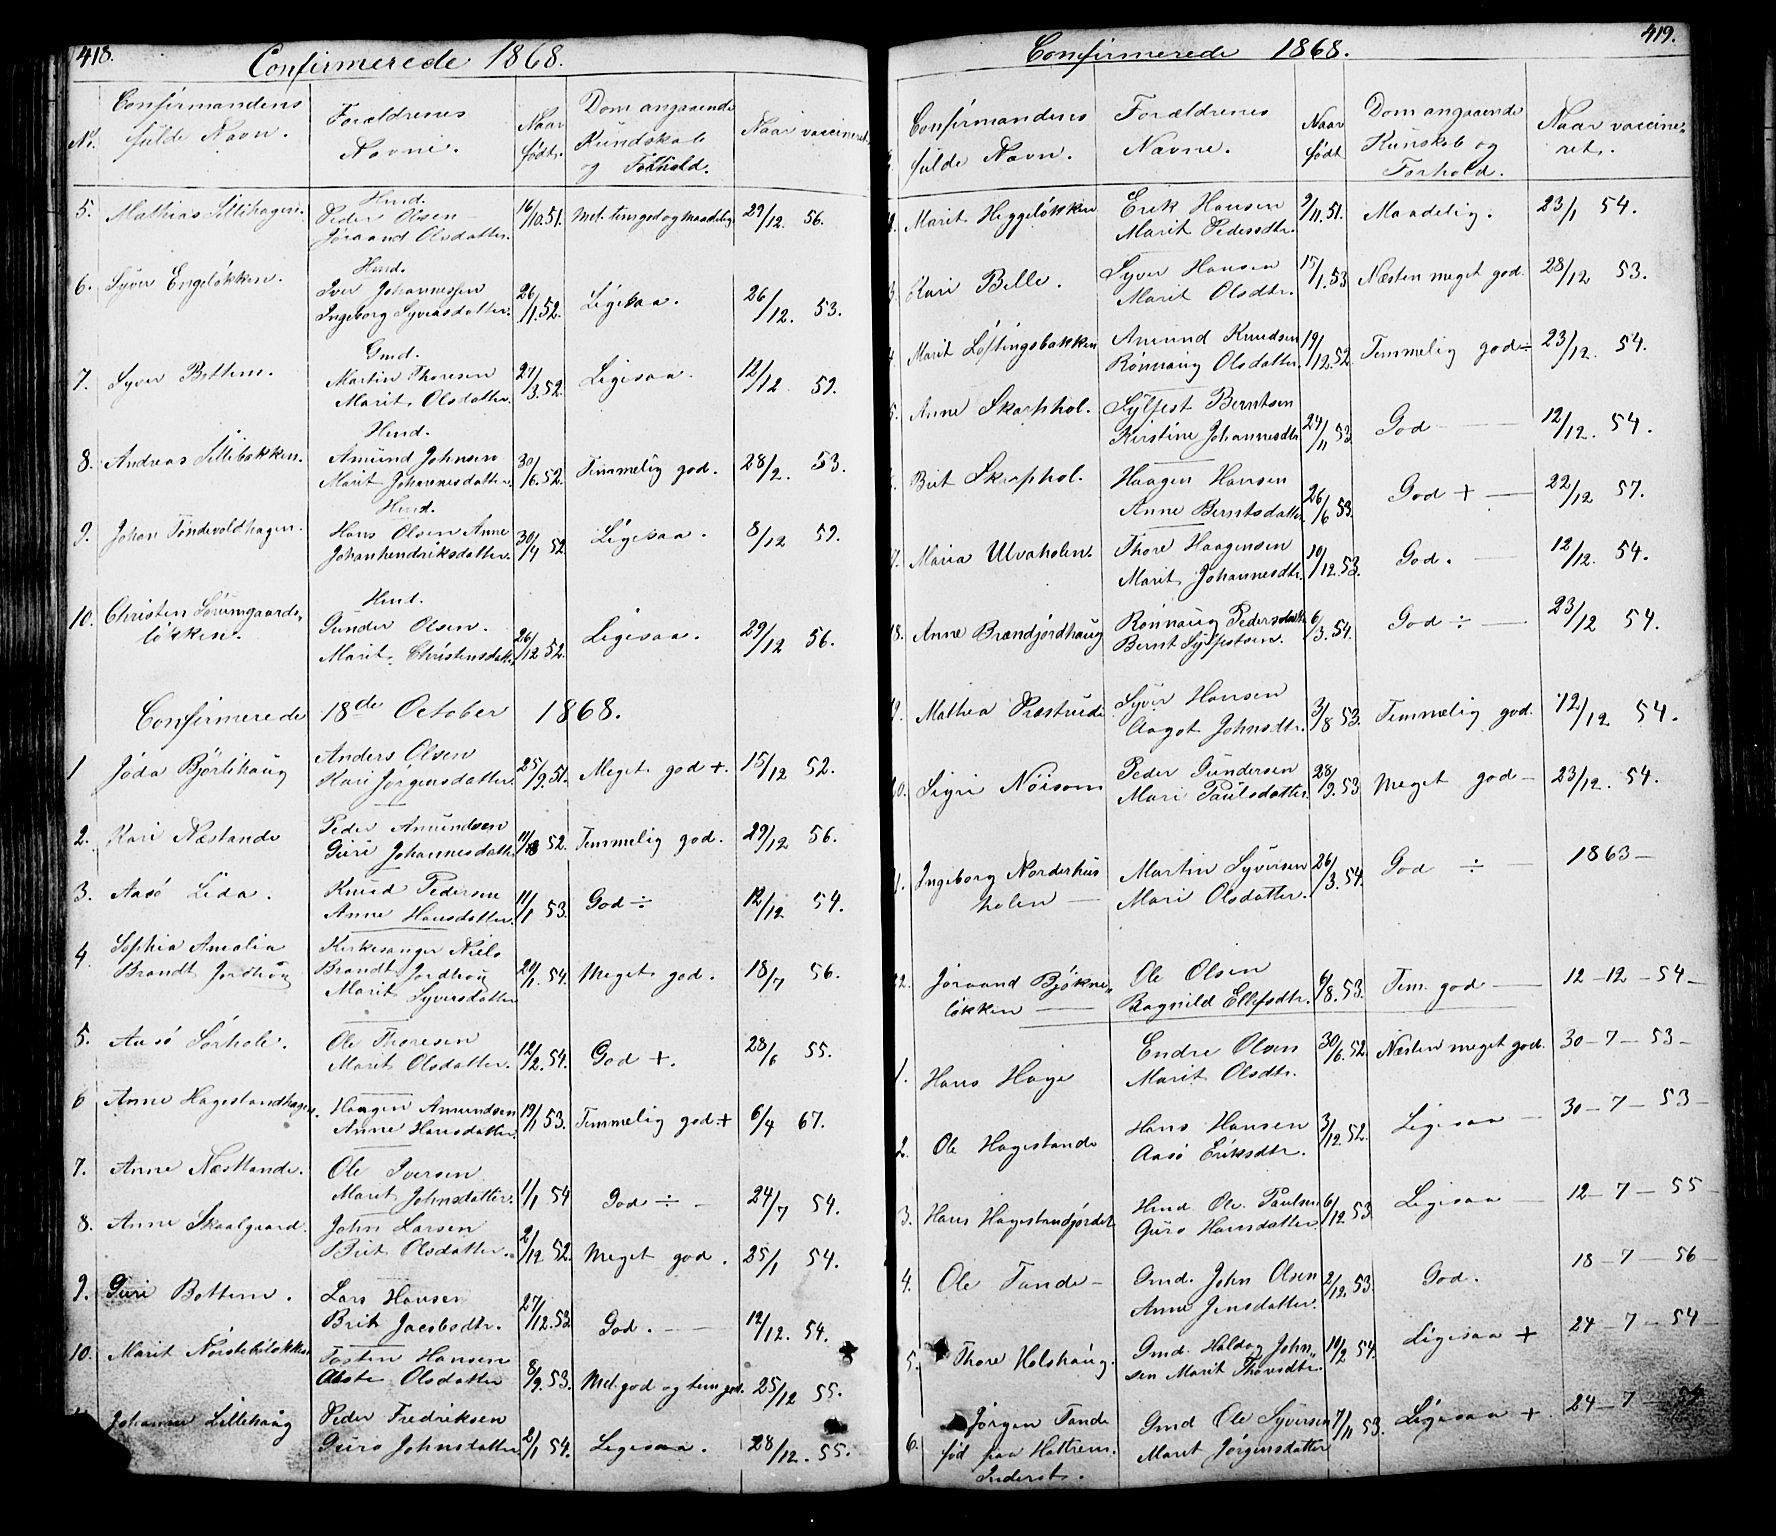 418.
Confirmerede 1868.
No. Confirmandens fulde Navn. Forældrenes Navne. Naar født. Dom angaaende Kundskab og Forhold. Naar vaccineret.
5. Mathias Lillihagen. Hmd. Peder Olsen Jøraand Olsdatter. 16/10. 51. Mel. tem god og maadelig 29/12 56.
6. Syver Engeløkken. Hmd. Iver Johannessen Ingeborg Syversdatter. 26/11. 52. Ligesaa. 26/12. 53.
7. Syver Bottem. Gmd. Martin Thoresen Marit Olsdatter. 27/3. 52. Ligesaa. 12/12 52.
8. Andreas Lillebakken. Hmd. Amund Johnsen Marit Johannesdatter. 30/6. 52. Temmelig god. 28/2. 53.
9. Johan Tondevoldhagen. Hmd. Hans Olsen Anne Johanhendriksdatter. 30/4 52 Ligesaa. 8/12 52.
10. Christen Sørumgaards-
løkken. Hmd. Gunder Olsen. Marit Christensdatt. 26/12 52. Ligesaa. 29/12 56.
Confirmerede 18de October 1868.
1 Jøda Bjørlihaug Anders Olsen Kari Jørgensdatter. 25/9. 51. Meget god +. 15/12 52.
2. Kari Næstande Peder Amundsen Guri Johannesdatt. 52. Temmelig god. 29/12 56.
3. Aasø Lida. Knud Pedersen Anne Hansdatter. 11/1 53. God ÷ 12/12 54.
4. Sophia Amalia
Brandt Jordhøi Kirkesanger Niels Brandt Jordhøi Marit Syversdatter 20/1. 54. Meget god. 18/7 56.
5. Aasø Sørhole. Ole Thoresen Marit Olsdatter. 12/2. 54. God +. 28/6 55.
6 Anne Hagestandhagen. Haagen Amundsen Anne Hansdatter. 19/1 53. Temmelig god + 6/4 67.
7. Anne Næstande. Ole Iversen Marit Johnsdatter. 1/1 54 God ÷ - 24/7 54.
8. Anne Skaalgaard. John Larsen Brit Olsdatter. 2/12 52. Meget god. 25/1 54.
9. Guri Bottem. Lars Hansen Brit Jacobsdtr. 27/12. 53. God. - 12/12. 54.
10. Marit Nørstebøløkken Tosten Hansen Olsdatter 8/9. 53. Mel. god og tem god. 25/12 55.
Johanne Lillehaug Peder Fredriksen Guro Johnsdatter 2/1 54. Ligesaa. 28/12. 55.
419.
Confirmerede 1868.
Confirmandens fulde Navn. Forældrenes Navne. Naar født Dom angaaende Kunskab og Forhold. Naar vaccine-
ret.
Marit Heggeløkken Erik Hansen Marit Pedersdtr. 9/11. 51. Maadelig. 23/1 54.
3. Kari Belle. Syver Hansen Marit Olsdtr. 15/1. 53 Næsten meget god. 28/12 53.
4. Marit Løftingsbakken Amund Knudsen Rønnaug Olsdatter. 19/12. 52 Temmelig god ÷ 23/12. 54.
5. Anne Skarphol. Sylfest Berntsen Kirstine Johannesdtr 24/11 53. God - 12/12. 54.
Brit Skarphol. Haagen Hansen Anne Berntsdatter 26/6 53. God + - 22/12 57.
7. Maria Ulvaholen. Thore Haagensen Marit Johannesdtr. 10/12. 53. God. - 12/12. 54.
8. Anne Brændjordhaug Rønnaug Pedersdatt. Bernt Sylfestsen. 6/3. 54. God ÷ - 23/12 54.
9. Mathea Præstuide Syver Hansen Aagot Johnsdtr. 3/8 53. Temmelig god. 12/12 54.
10. Sigri Nøisom Peder Gundersen Mari Paulsdatter. 28/9. 53 Meget god - 23/12. 54.
1. Ingeborg Norderhus
holen - Martin Syversen Mari Olsdatter. 26/3. 54. God ÷ - 1863 -
12. Jøraand Bjøkne-
løkken - Ole Olsen Ragnild Ellefsdtr. 6/8. 53. Tem. god - 12 - 12 - 54 -
1. Hans Hage Endre Olsen Marit Olsdtr. 30/6. 52 Næsten meget god. 30 - 7 - 53 -
2. Ole Hagestande Hans Hansen Aasø Eriksdtr. 3/12. 52. Ligesaa - 30 - 7 - 53 -
3. Hans Hagestandjordet Hmd. Ole Paulsen Guro Hansdatter 6/12. 53. Ligesaa - 12 - 7 - 55
4. Ole Tande - Gmd. John Olsen Anne Jensdatter. 2/12. 53. God. 18 - 7 - 56 -
5. Thore Holshaug. Gmd. Haldog John-
sen Marit Thoresdtr. 10/2 54. Ligesaa + 24 - 7 - 54 -
6. Jørgen Tande
fød paa Hattrem.
Inderst. Gmd Ole Syversen Marit Jørgensdatter 7/11 53. Ligesaa + 24 - 7 - 54